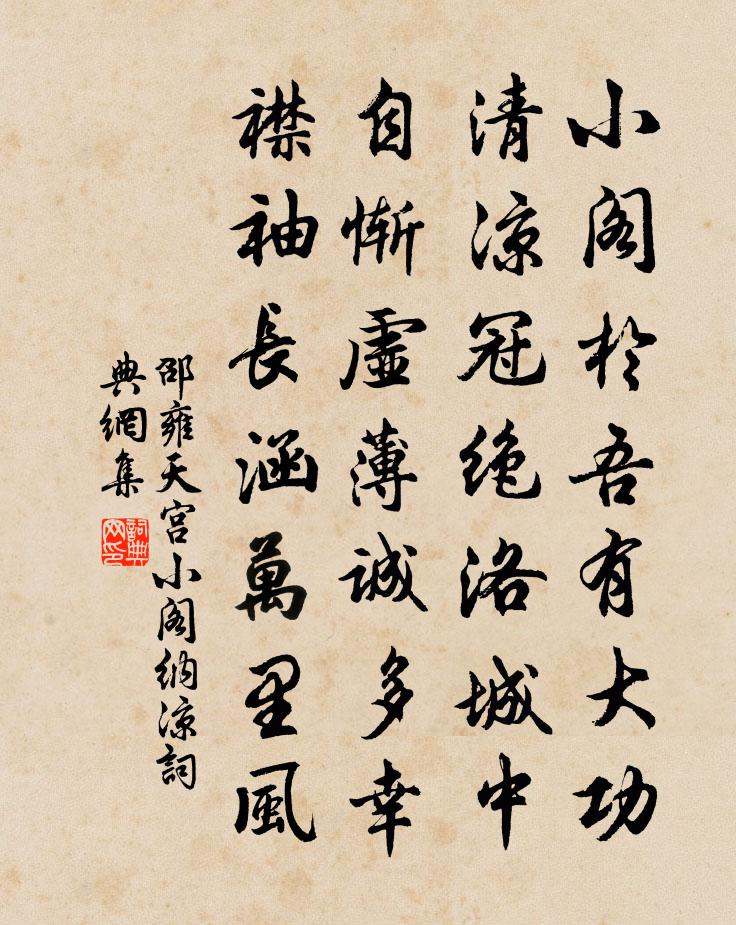 小閣於吾有大功
清涼冠絶洛城中
自慚虛薄誠多幸
襟袖長涵萬里風
邵雍天宮小閣納涼詞
典網集
詞典
网印